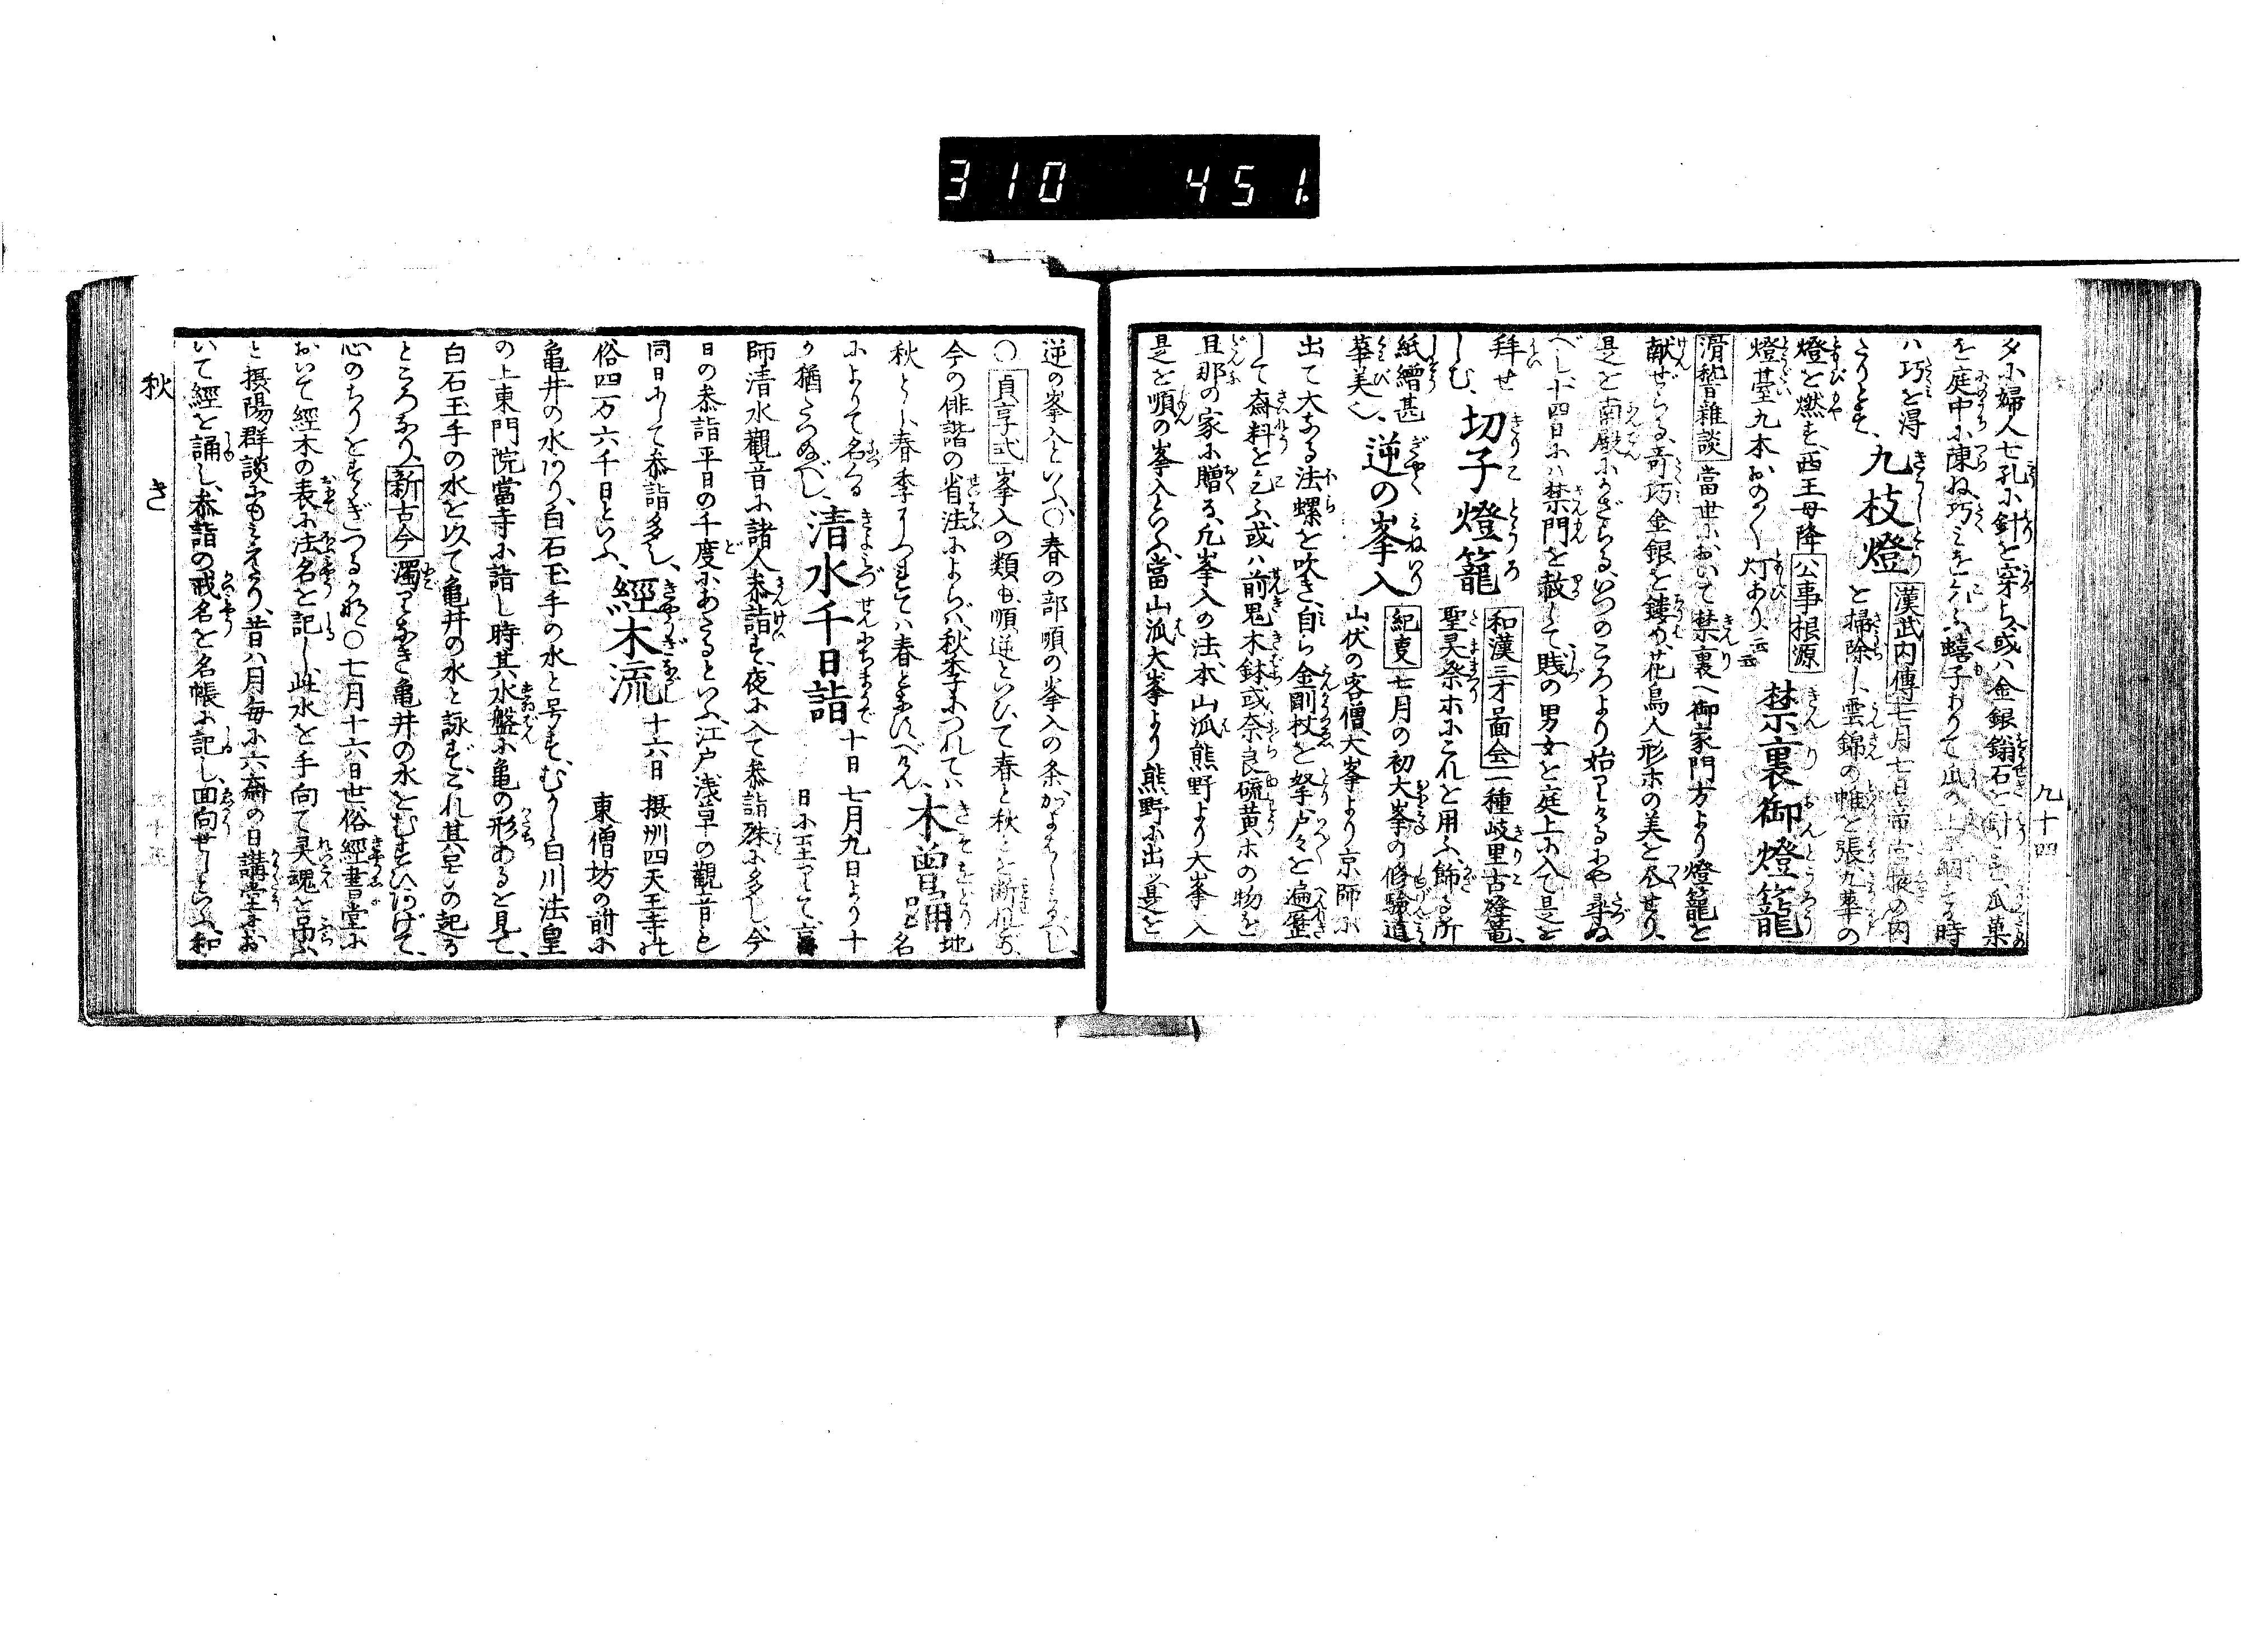 310 451.
九十四
夕に婦人七孔に針を穿ち、或ハ金銀鍮石を針とす、瓜菓
を庭中に陳ね、巧ミをこふ、蟢子ありて瓜の上に網する時
ハ巧を得
たりとす、九枝燈 漢武内傳 七月七日帝宮掖の内
を掃除し、雲錦の帷を張、九華の
燈を燃す、西王母降 公事根源
燈䑓九本おの〳〵灯あり、云云 禁裏御燈籠
滑稽雜談 當世において禁裏へ御家門方より燈籠を
献ぜらる、奇巧金銀を鏤め、花鳥人形ホの美を尽せり、
是を南殿にかざらる、いつのころより始りけるにや尋ぬ
べし、十四日にハ禁門を赦して、賎の男女を庭上に入て是を
拜せ
しむ、切子燈籠 和漢三才圖會 一種岐里古燈篭、
聖灵祭ホにこれを用ふ、飾る所
紙繒甚
華美也、逆の峯入 紀事 七月の初大峯の修驗道
山伏の客僧大峯より京師に
出て大なる法螺を吹き、自ら金剛杖を拏戸々を遍歴
して斎料を乞ふ、或ハ前鬼木鉢或奈良硫黄ホの物を
旦那の家に贈る、凡峯入の法、本山派熊野より大峯ニ入
是を順の峯入といふ、當山派大峯より熊野に出ッ、是を
逆の峯入といふ、〇春の部順の峯入の条かよハしミるべし、
〇 貞享式 峯入の類も、順逆といひて春と秋とを断れど、
今の俳諧の省法によらバ、秋季につれてハ
秋とし、春季につれてハ春とすべけん、木曽踊 地
名
によりて名くる
か猶たづぬべし、清水千日詣 十日 七月九日より十
日に至つて、京
師清水觀音に諸人参詣す、夜に入て参詣殊に多し、今
日の参詣平日の千度にあたるといふ、江戸浅草の觀音も
同日にして参詣多し、
俗四万六千日といふ、經木流 十六日 摂州四天王寺北
東僧坊の前に
亀井の水あり、白石玉手の水と号す、むかし白川法皇
の上東門院當寺に詣し時其水盤に亀の形あるを見て、
白石玉手の水を以て亀井の水と詠ず、これ其号の起る
ところなり、新古今 濁りなき亀井の水をむすひあげて、
心のちりをすゝぎつるかな 〇七月十六日世俗經書堂に
おいて經木の表に法名を記し、此水を手向て灵魂を吊ふ
と摂陽群談にもミえたり、昔ハ月毎に六斎の日講堂にお
いて經を誦し、参詣の戒名を名帳に記し、回向せりといふ、和
秋
き